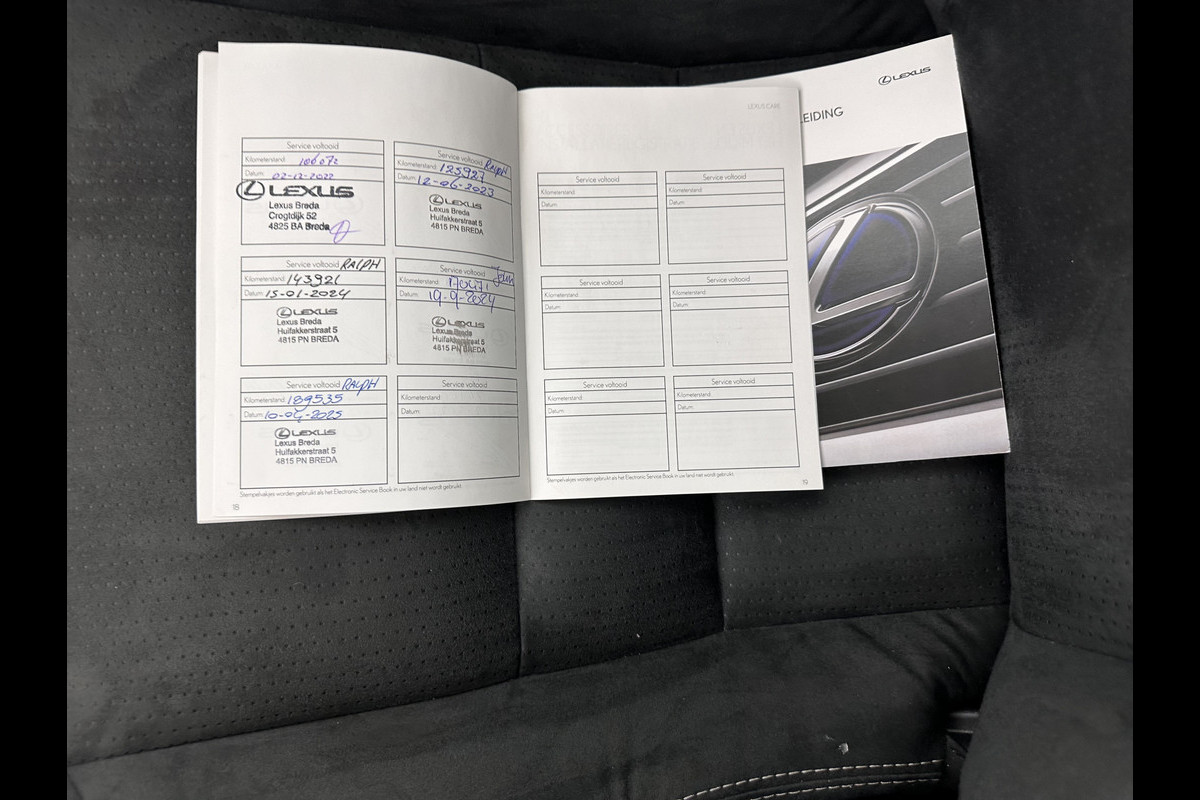 Service voltooid
Kilometerstand: 106072
Datum: 02-12-2022
LEXUS
Lexus Breda
Crogtdijk 52
4825 BA Breda
Service voltooid RALPH
Kilometerstand: 125927
Datum: 12-06-2023
LEXUS
Lexus Breda
Huifakkerstraat 5
4815 PN BREDA
Service voltooid RALPH
Kilometerstand:
Datum: 15-01-2024
LEXUS
Lexus Breda
Huifakkerstraat 5
4815 PN BREDA
Service voltooid
Kilometerstand:
Datum: 19-9-2024
LEXUS
Lexus Breda
Huifakkerstraat 5
4815 PN BREDA
Service voltooid RALPH
Kilometerstand: 189535
Datum: 10-04-2025
LEXUS
Lexus Breda
Huifakkerstraat 5
4815 PN BREDA
Service voltooid
Kilometerstand:
Datum:
Stempelvakjes worden gebruikt als het Electronic Service Book in uw land niet wordt gebruikt.
18
LEXUS CARE
Service voltooid
Kilometerstand:
Datum:
Service voltooid
Kilometerstand:
Datum:
Service voltooid
Kilometerstand:
Datum:
Service voltooid
Kilometerstand:
Datum:
Service voltooid
Kilometerstand:
Datum:
Service voltooid
Kilometerstand:
Datum:
Stempelvakjes worden gebruikt als het Electronic Service Book in uw land niet wordt gebruikt.
19
LEXUS
LEIDING